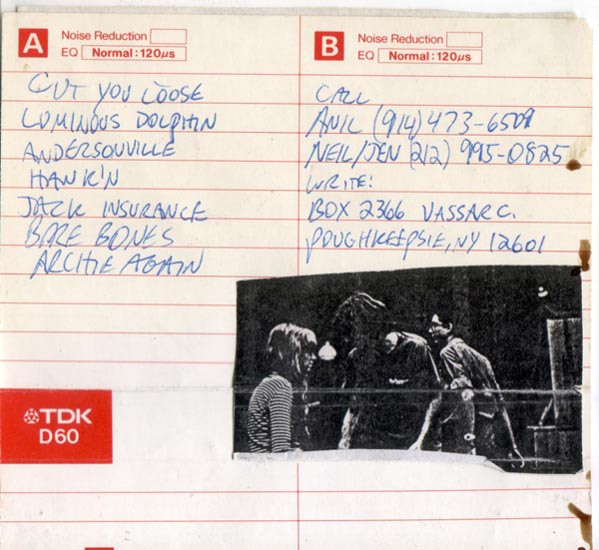 A
Noise Reduction
EQ Normal:120μs
CUT YOU LOOSE
LUMINOUS DOLPHIN
ANDERSONVILLE
HANK'N
JACK INSURANCE
BARE BONES
ARCHIE AGAIN
TDK
D60
B
Noise Reduction
EQ Normal:120μs
CALL
ANIL (914) 473-6509
NEIL/JEN (212) 995-0825
WRITE:
BOX 2366 VASSAR C.
POUGHKEEPSIE, NY 12601